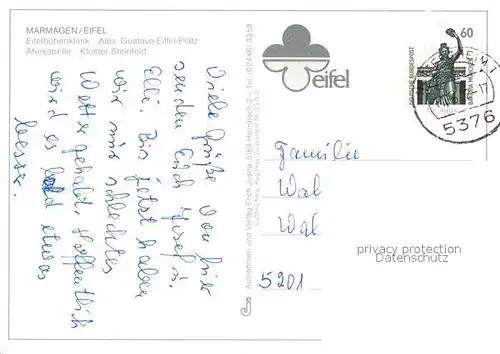 MARMAGEN/EIFEL
Eifelhöhenklinik · Alex Gustave-Eiffel-Platz
Ahekapelle · Kloster Steinfeld
Viele Grüße von hier
senden Euch Josef u.
Elli. Bis jetzt haben
wir nur schlechtes
Wetter gehabt. Hoffentlich
wird es bald etwas
besser.
Aufnahmen und Verlag Erich Justra, 5169 Heimbach 2 · Tel. (02446) 3359
eifel
60
DEUTSCHE BUNDESPOST
5376
Familie
Wal
Wal
5201
privacy protection
Datenschutz